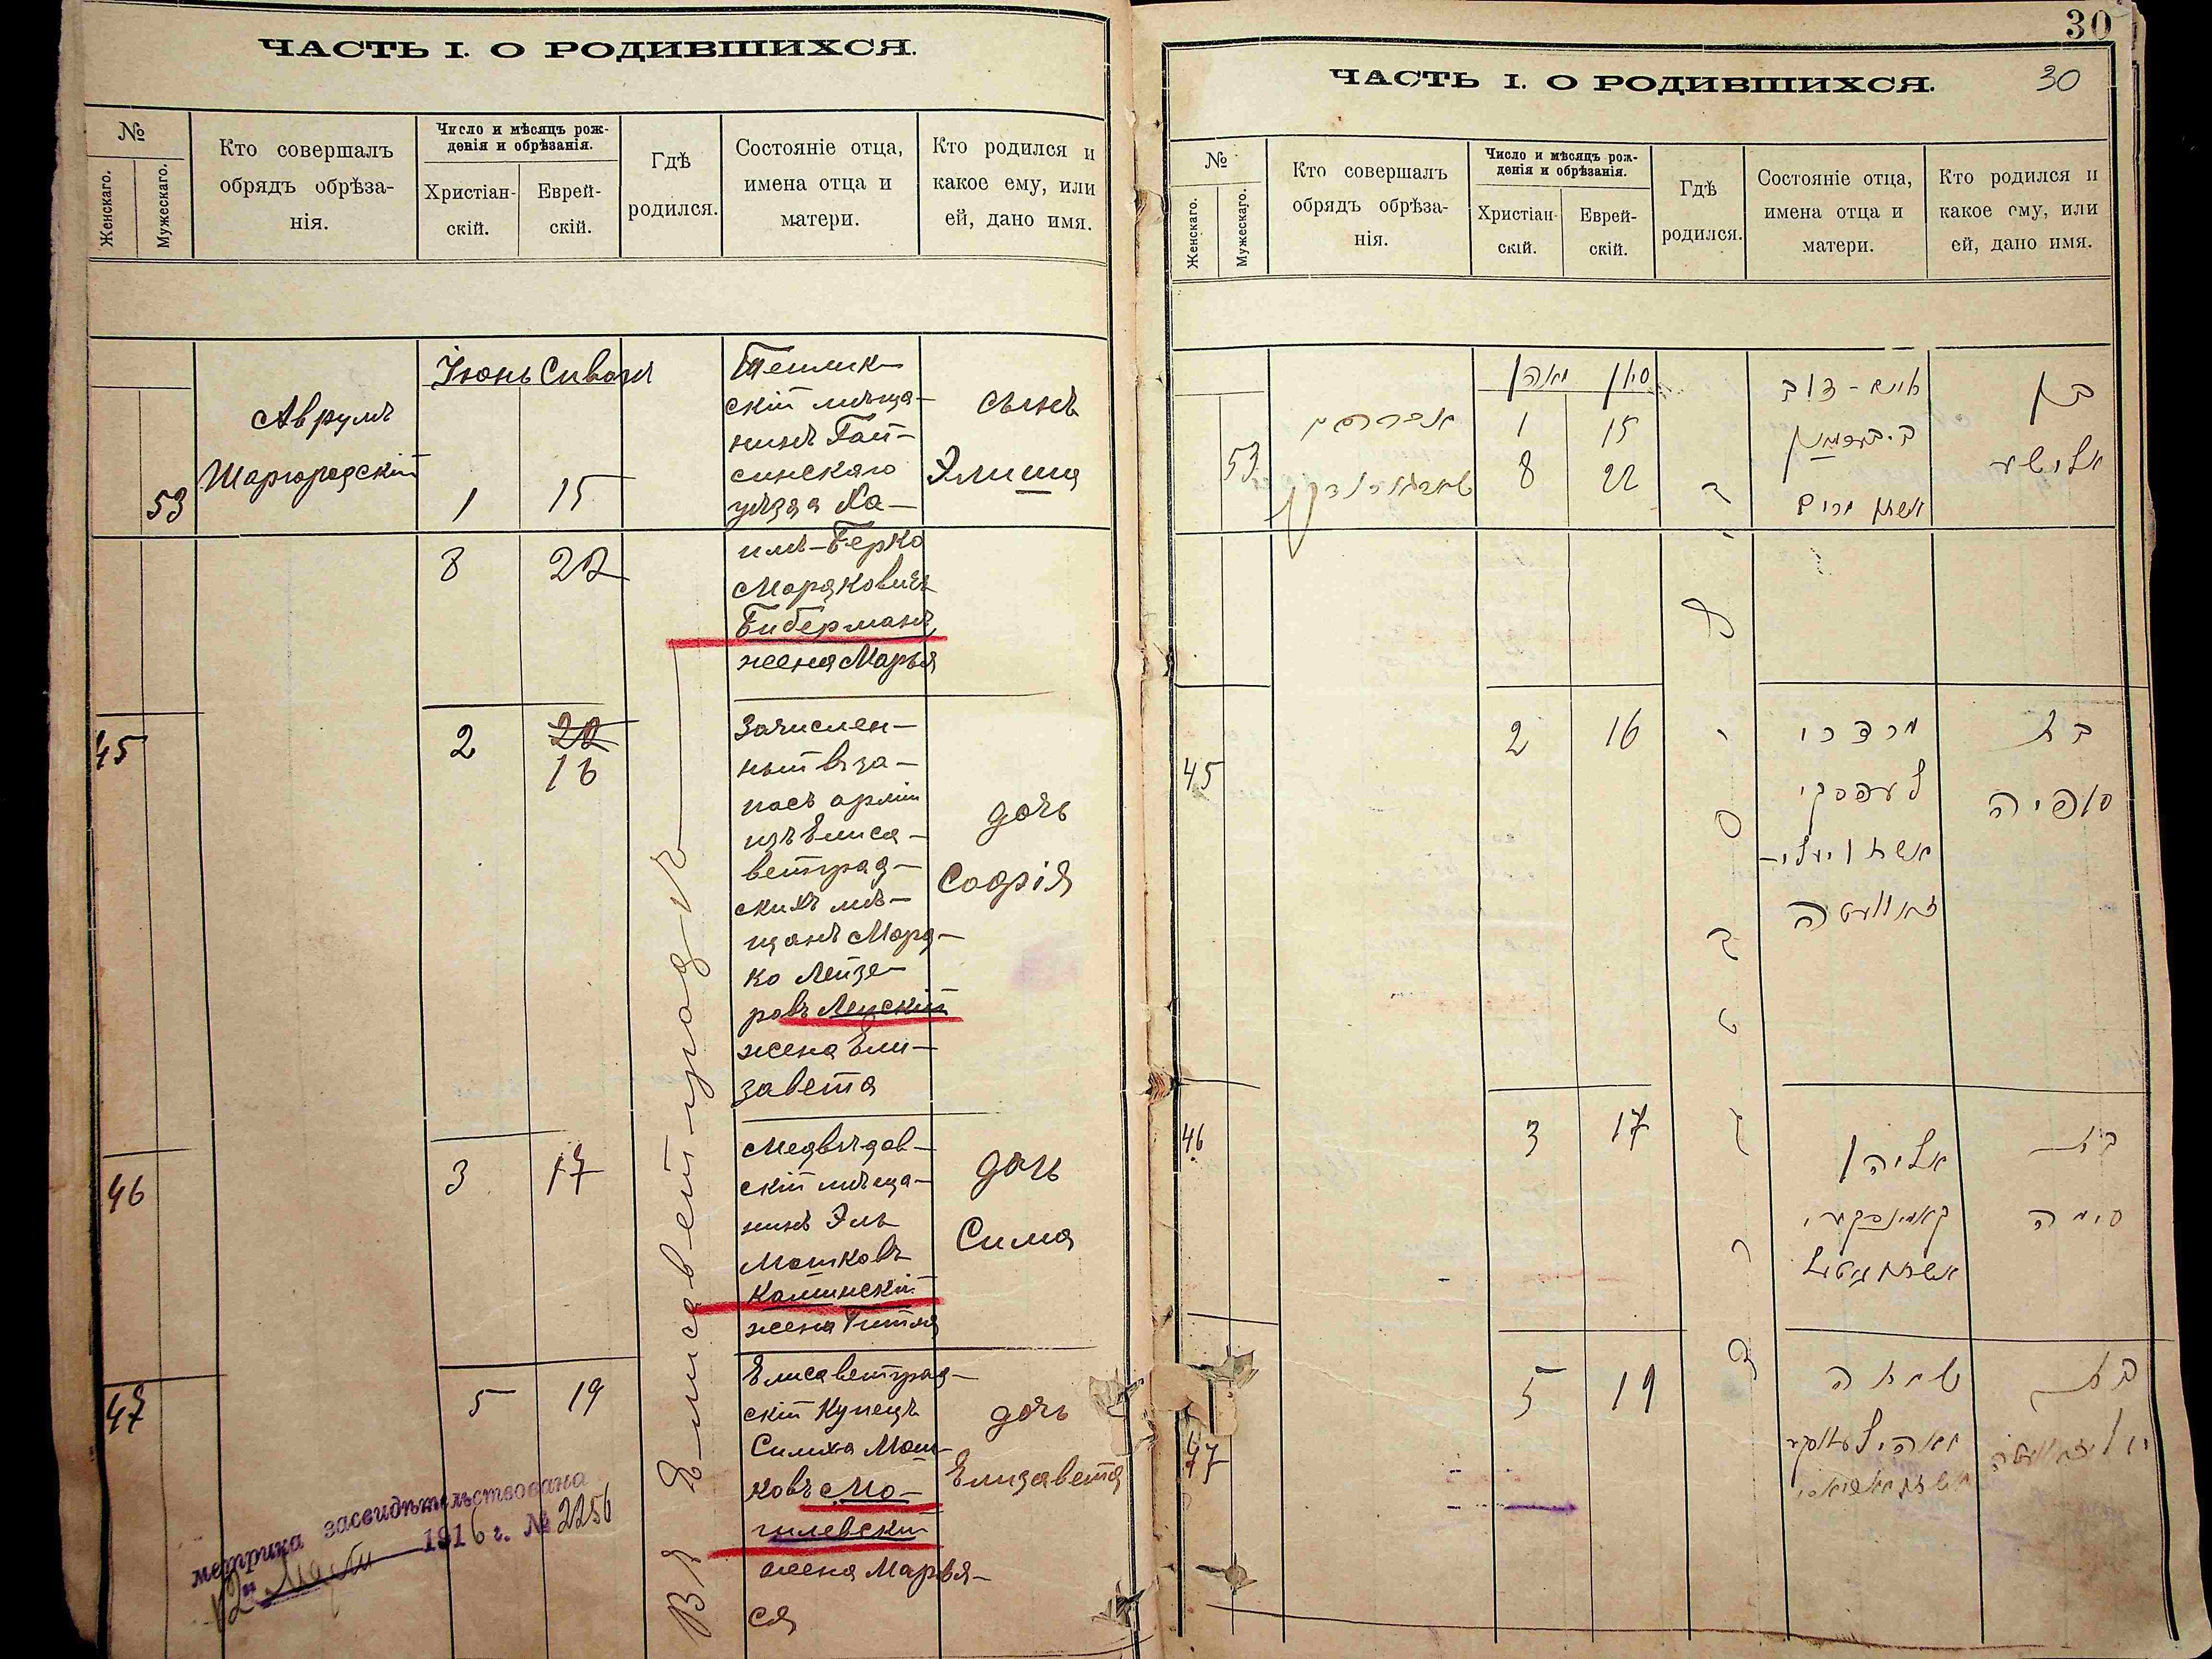 ЧАСТЬ I. О РОДИВШИХСЯ.
№
Женскаго.
Мужескаго.
Кто совершалъ
обрядъ обрѣза-
нія.
Число и мѣсяцъ рож-
денія и обрѣзанія.
Христіан-
скій.
Еврей-
скій.
Гдѣ
родился.
Состояніе отца,
имена отца и
матери.
Кто родился и
какое ему, или
ей, дано имя.
53
Аврумъ
Шаргородскій
Іюнь Сивон
1 15
8 22
скій мѣща-
нинъ Гай-
синскаго
уѣзда Ха-
имъ-Берко
Мордковичъ
Биберманъ,
жена Марья
сынъ
Элиша
45
2 22
16
Зачислен-
ный въ за-
пасъ арміи
изъ Елиса-
ветград-
скихъ мѣ-
щанъ Морд-
ко Лейзе-
ровъ Лепскій
жена Ели-
завета
дочь
Софія
46
3 17
Медвѣдов-
скій мѣща-
нинъ Эль
Мошковъ
Каминскій
жена Гитля
дочь
Сима
47
5 19
Елисаветград-
скій Купецъ
Симха Мош-
ковъ Мо-
гилевскій
жена Марья-
ся
дочь
Елизавета
Въ Елисаветградѣ
метрика засвидѣтельствована
12 Марта 1916 г. № 2256
30
30
ЧАСТЬ I. О РОДИВШИХСЯ.
№
Женскаго.
Мужескаго.
Кто совершалъ
обрядъ обрѣза-
нія.
Число и мѣсяцъ рож-
денія и обрѣзанія.
Христіан-
скій.
Еврей-
скій.
Гдѣ
родился.
Состояніе отца,
имена отца и
матери.
Кто родился и
какое ему, или
ей, дано имя.
53
אברהם
1 15
8 22
אשתו מרים
בן
אלישע
45
2 16
מרדכי
לעפסקי
בת
סופיה
46
3 17
אליהו
קאמינסקי
בת
סימה
47
5 19
שמחה
בת